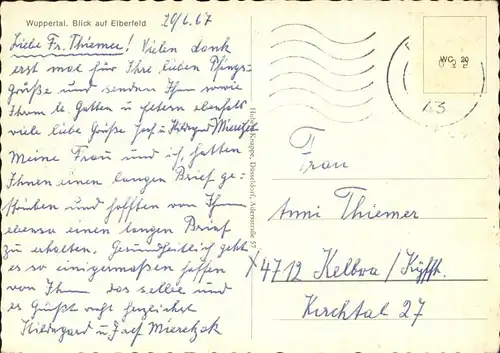 Wuppertal, Blick auf Elberfeld
20/6.67
Liebe Fr. Thiemer! Vielen dank
erst mal für Ihre lieben Pfings-
grüße und senden Ihnen sowie
Ihrem lb Gatten u ebenfals
viele liebe Grüße Josef u Hildegard Mieretzek
Meine Frau und ich, hatten
Ihnen einen langen Brief ge-
schrieben und hofften von Ihnen
ebenso einen langen Brief
zu erhalten. Gesundheitlich geht
es so einigermaßen hoffen
von Ihnen das selbe und
es Grüßt recht herzlichst
Hildegard u Josef Mieretzek
Knuppe, Düsseldorf, 57
WC 20
43
Frau
Anni Thiemer
X 4712 Kelbra / Kyffh.
Kirchtal 27